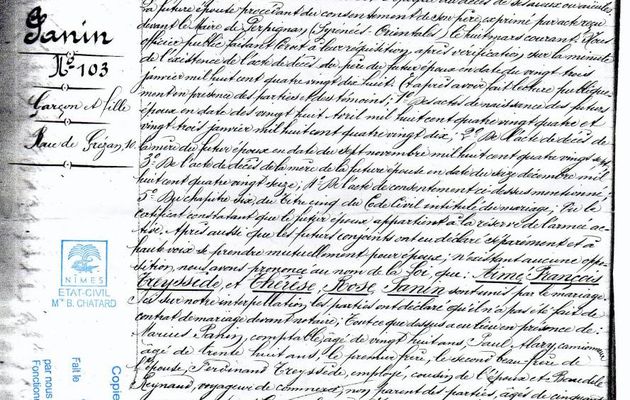 Janin
No 103
Garçon et fille
Rue de Grézan, 10
la future épouse procédant du consentement de son père, exprimé par acte reçu
devant le Maire de Perpignan (Pyrénées-Orientales) le huit mars courant. Nous
officier public faisant droit à leur réquisition, après vérification, sur la minute
de l'existence de l'acte de décès du père du futur époux en date du vingt trois
janvier mil huit cent quatre vingt dix huit. Et après avoir fait lecture publique
ment en présence des parties et des témoins; 1º Des actes de naissance des futurs
époux en date des vingt huit Avril mil huit cent quatre vingt quatre et
vingt trois janvier mil huit cent quatre vingt dix, 2º De l'acte de décès de
la mère du futur époux en date du sept novembre mil huit cent quatre vingt sept
3º De l'acte de décès de la mère de la future épouse en date du six décembre mil
huit cent quatre vingt seize, 4º De l'acte de consentement ci dessus mentionné
5º Du chapitre six du titre cinq du Code Civil intitulé du mariage; Vu le
certificat constatant que le futur époux appartient à la réserve de l'armée ac
tive. Après aussi que les futurs conjoints ont eu déclaré séparément et à
haute voix se prendre mutuellement pour époux, n'existant aucune oppo
sition, nous avons prononcé au nom de la Loi que: Aimé François
Treyssède, et Thérèse, Rose, Janin sont unis par le mariage.
Sur notre interpellation, les parties ont déclaré qu'il n'a pas été fait de
contrat de mariage devant notaire; Tout ce que dessus a eu lieu en présence de:
Marius Janin, comptable, âgé de vingt huit ans, Paul, Mary, camionneur
âgé de trente huit ans, le premier frère, le second beau-frère de
l'épouse, Ferdinand Treyssède, employé, cousin de l'époux et Baudile
Reynaud, voyageur de commerce, non parent des parties, âgés de cinquante
NÎMES
ETAT-CIVIL
Mme B. CHATARD
Copie
Fait le
par nous
Fonctionn